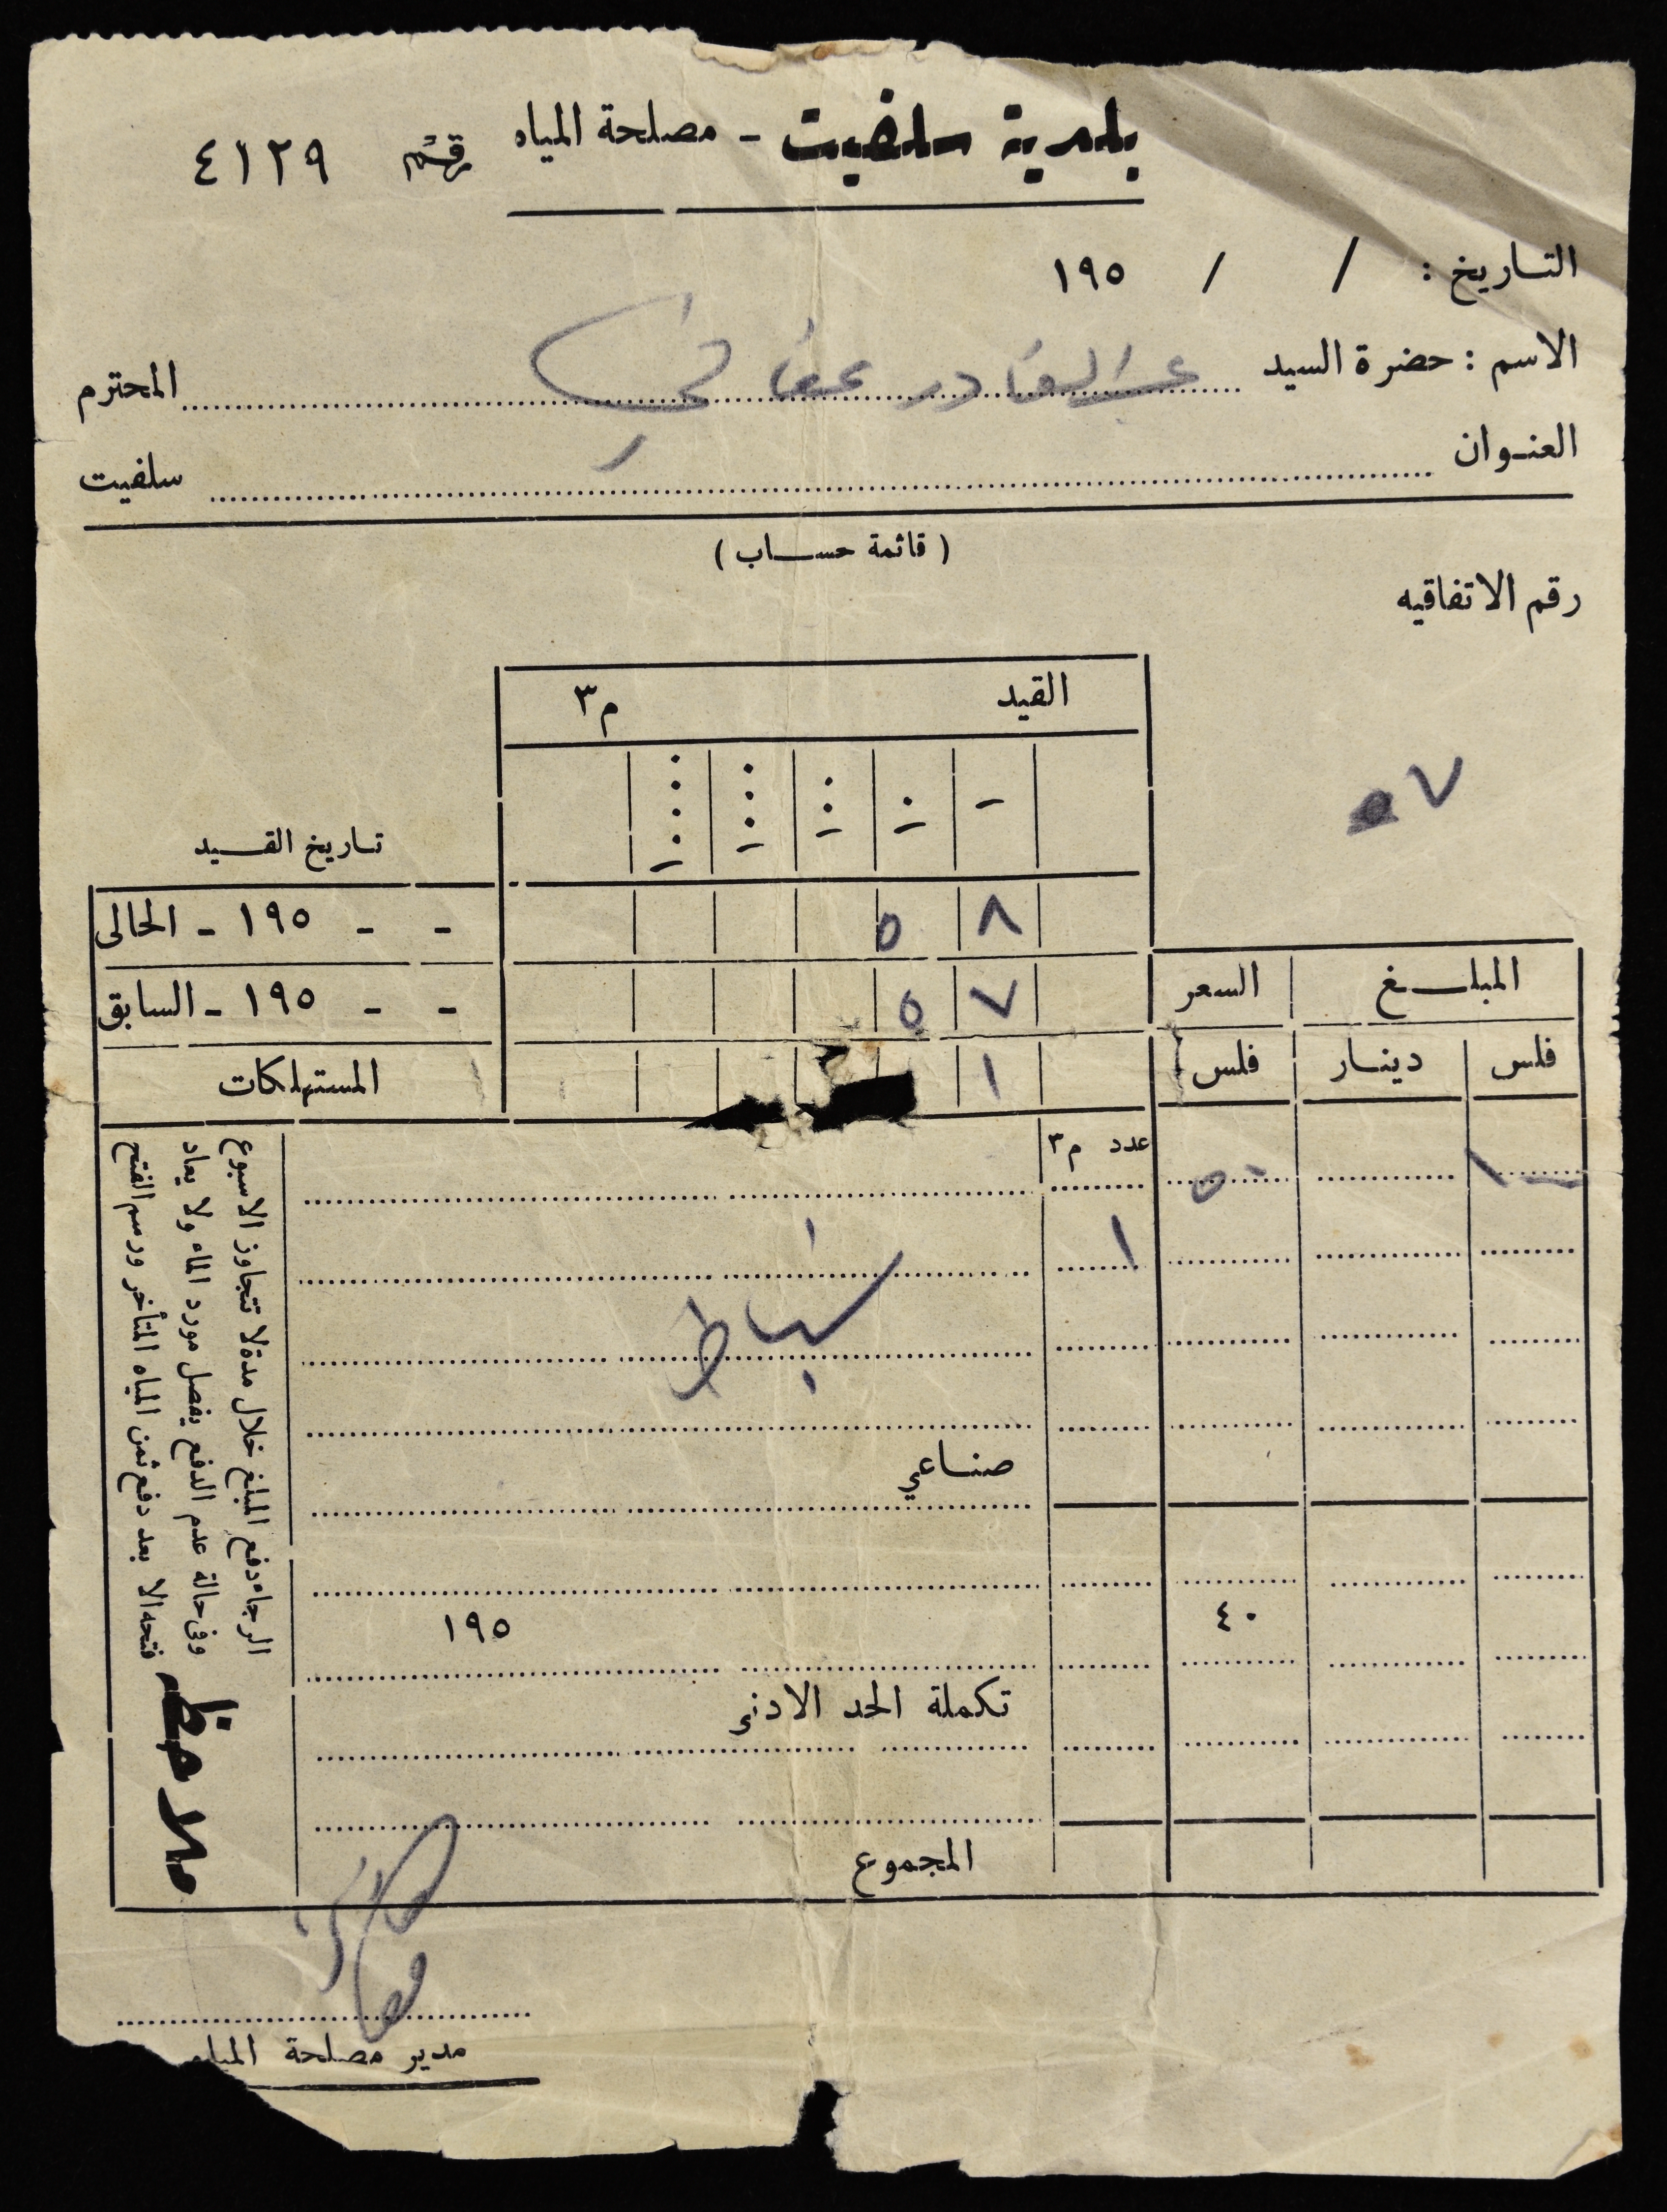 بلدية سلفيت - مصلحة المياه رقم ٤١٢٩
التاريخ : / / ١٩٥
الاسم : حضرة السيد عبد القادر عفاني المحترم
العنوان سلفيت
( قائمة حساب )
رقم الاتفاقيه
القيد م٣
٧
تاريخ القيد
٨ ٥ - - ١٩٥ - الحالى
٧ ٥ - - ١٩٥ - السابق
المبلغ السعر
١ المستهلكات
فلس دينار فلس
عدد م٣
٥٠
١
شباط
صناعي
٤٠ ١٩٥
تكملة الحد الادنى
المجموع
ملاحظه
الرجاء دفع المبلغ خلال مدة لا تتجاوز الاسبوع
وفى حالة عدم الدفع يفصل مورد الماء ولا يعاد
فتحه الا بعد دفع ثمن المياه المتأخر ورسم الفتح
مدير مصلحة المياه